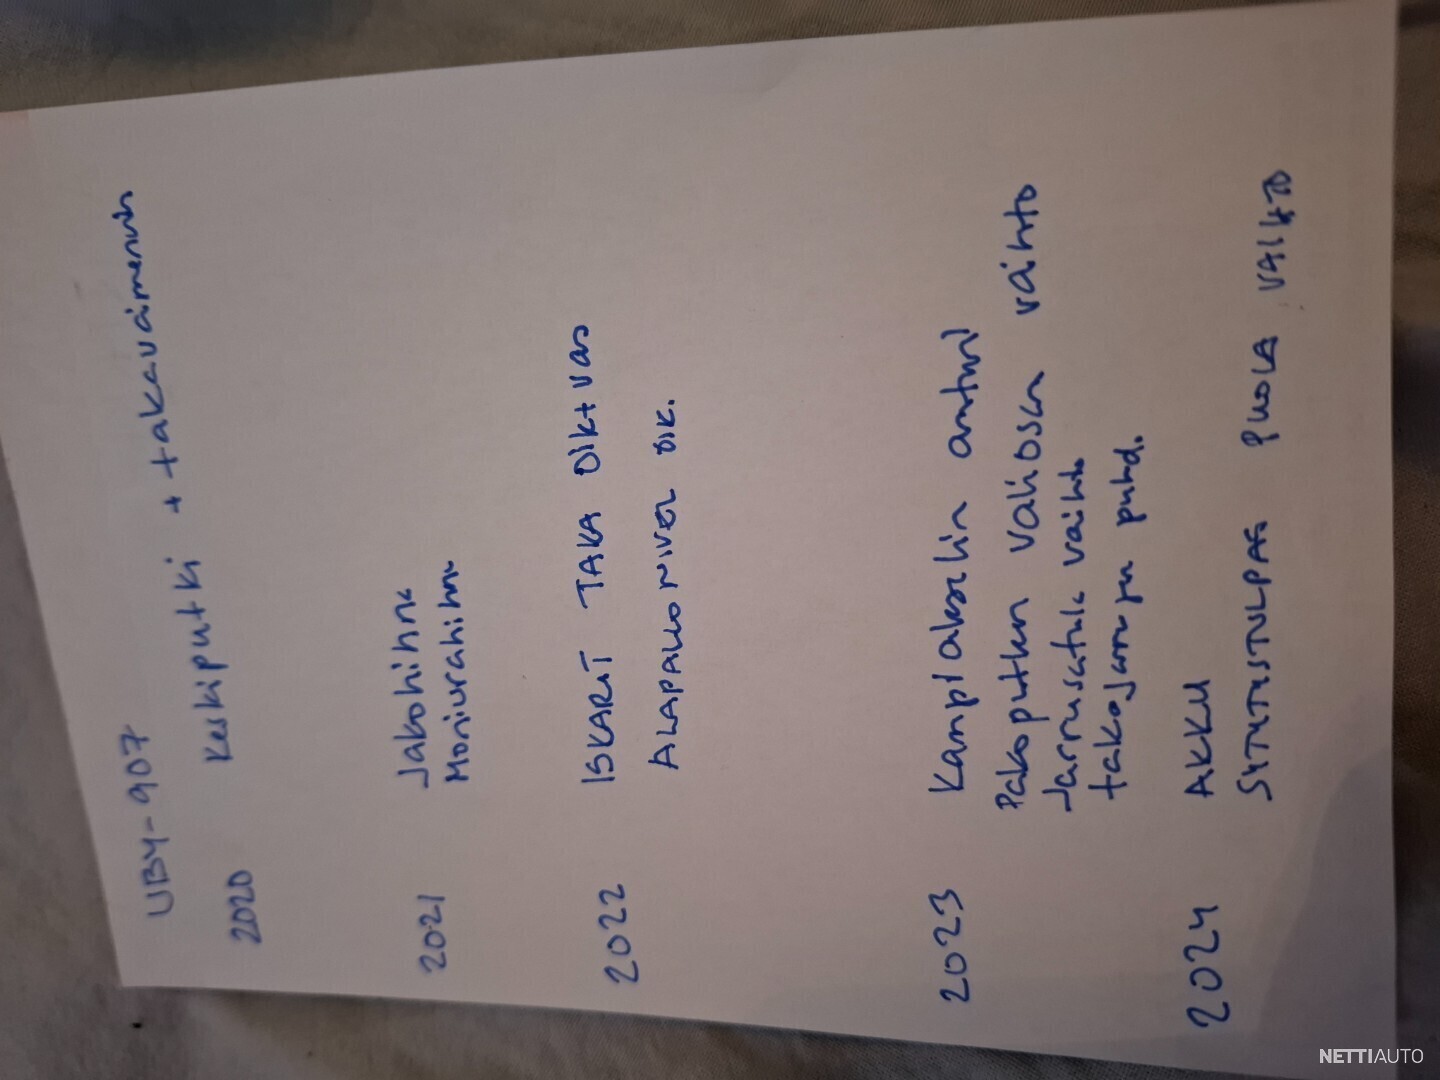 UBY-907
2020 Keskiputki + takavaimennin
2021 Jakohihna
Moniurahihna
2022 ISKARIT TAKA OIK+VAS
ALAPALLONIVEL OIK.
2023 Kampiakselin anturi
Pakoputken väliosan vaihto
Jarrusatula vaihto
takajarrujen puhd.
2024 AKKU
SYTYTYSTULPAT PUOLA VAIHTO
NETTIAUTO